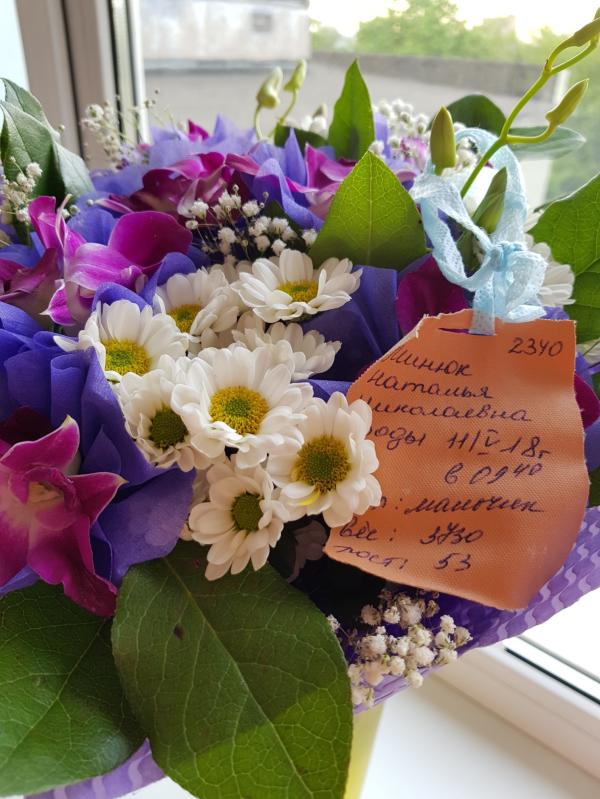 2340
Минюк
Наталья
Николаевна
роды 11/V 18г
в 09 40
: мальчик
Вес: 3730
рост: 53